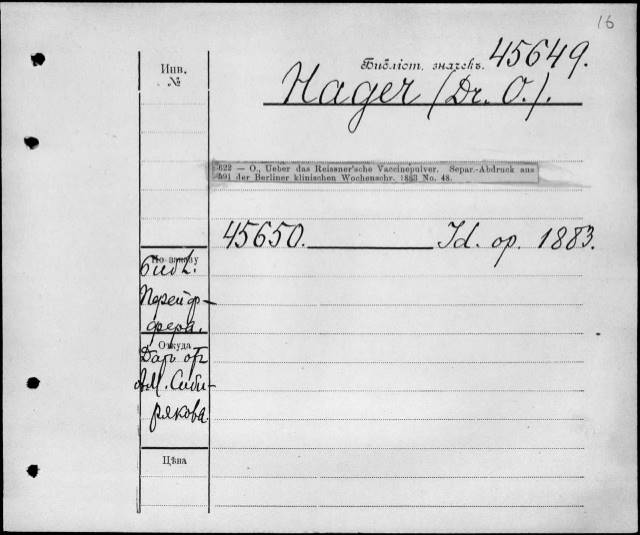 16
Инв.
№
Библіот. значекъ. 45649.
Hager (Dr. O.).
622 — O., Ueber das Reissner'sche Vaccinepulver. Separ.-Abdruck aus
591 der Berliner klinischen Wochenschr. 1883 No. 48.
45650. Id. op. 1883.
По заказу
Библ.
Пфейф-
фера.
Откуда
Даръ отъ
А.М. Сиби-
рякова
Цѣна